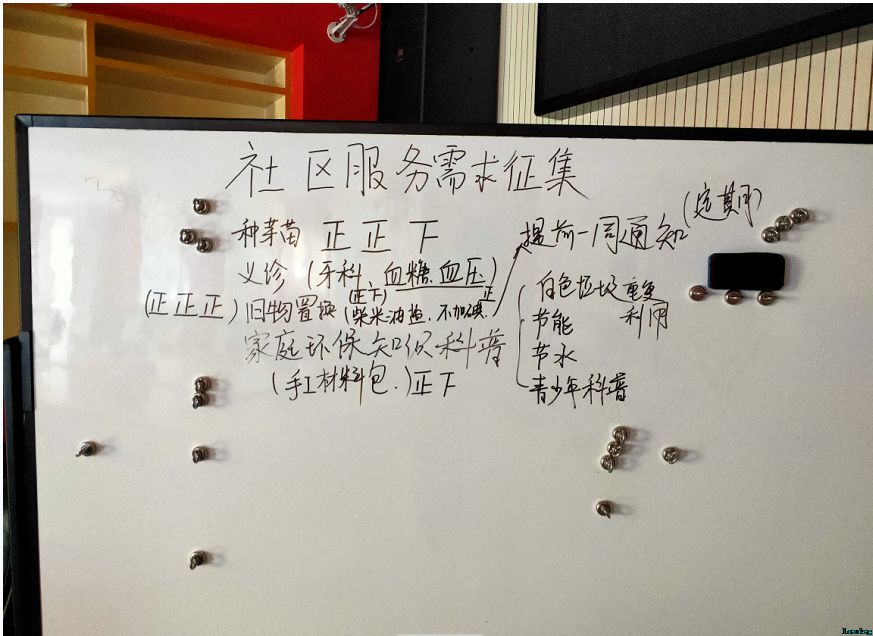 社区服务需求征集
种菜苗 正 正 下
提前一周通知(定期)
义诊(牙科、血糖、血压)
(正下) 正
(正正正)旧物置换(柴米油盐、不加碘)
家庭环保知识科普
(手工材料包、)正下
白色垃圾重复利用
节能
节水
青少年科普